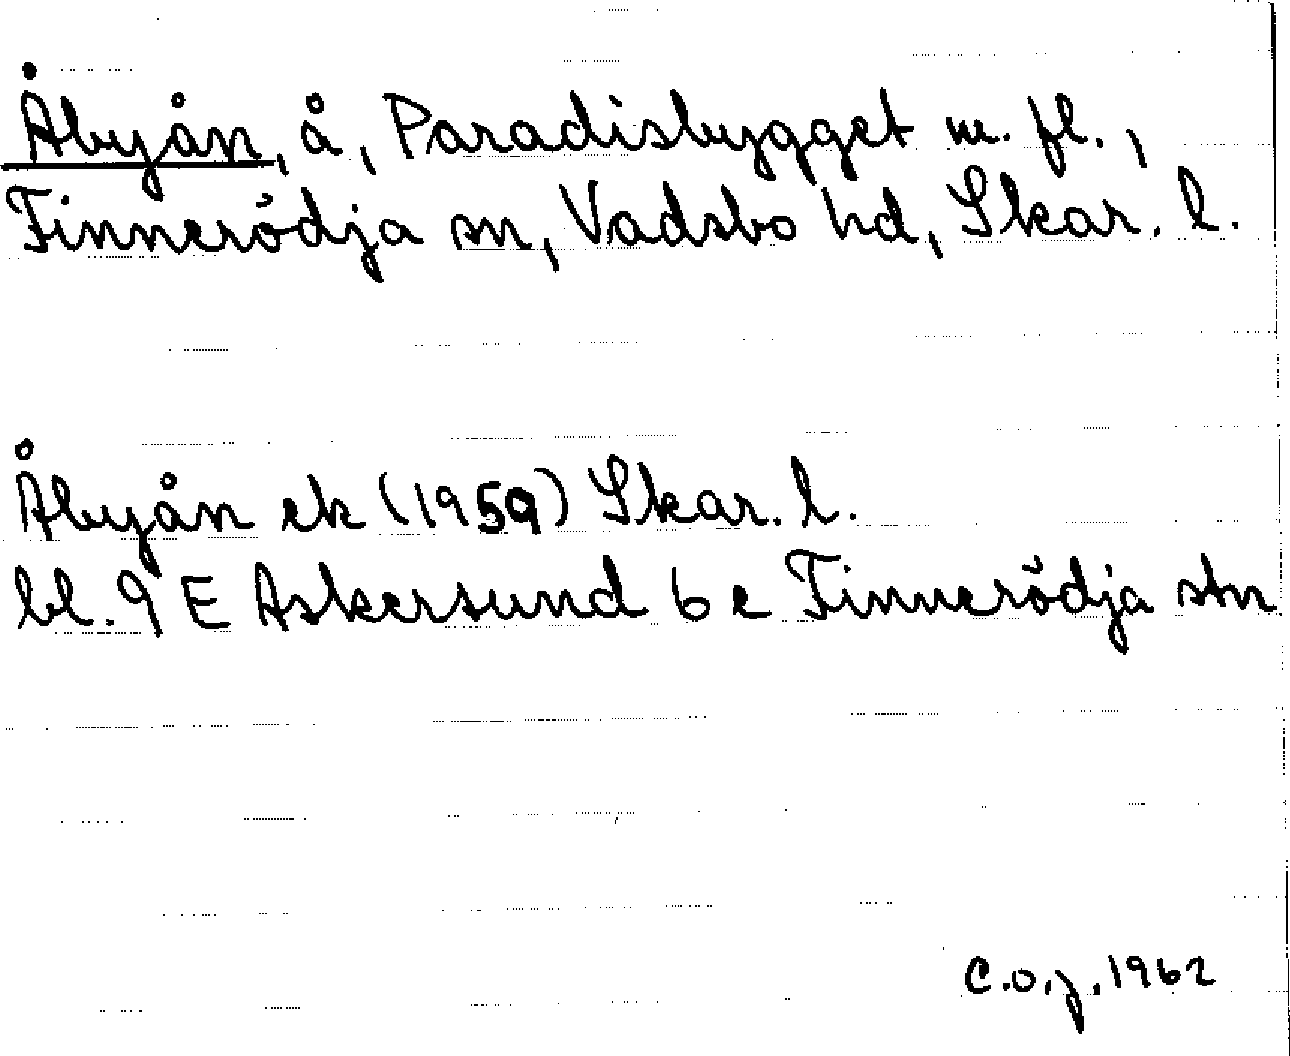 Åbyån, å, Paradisbygget m. fl.,
Finnerödja sn, Vadsbo hd, Skar. l.
Åbyån ek (1959) Skar. l.
bl. 9 E Askersund 6 c Finnerödja stn
C.O.J. 1962